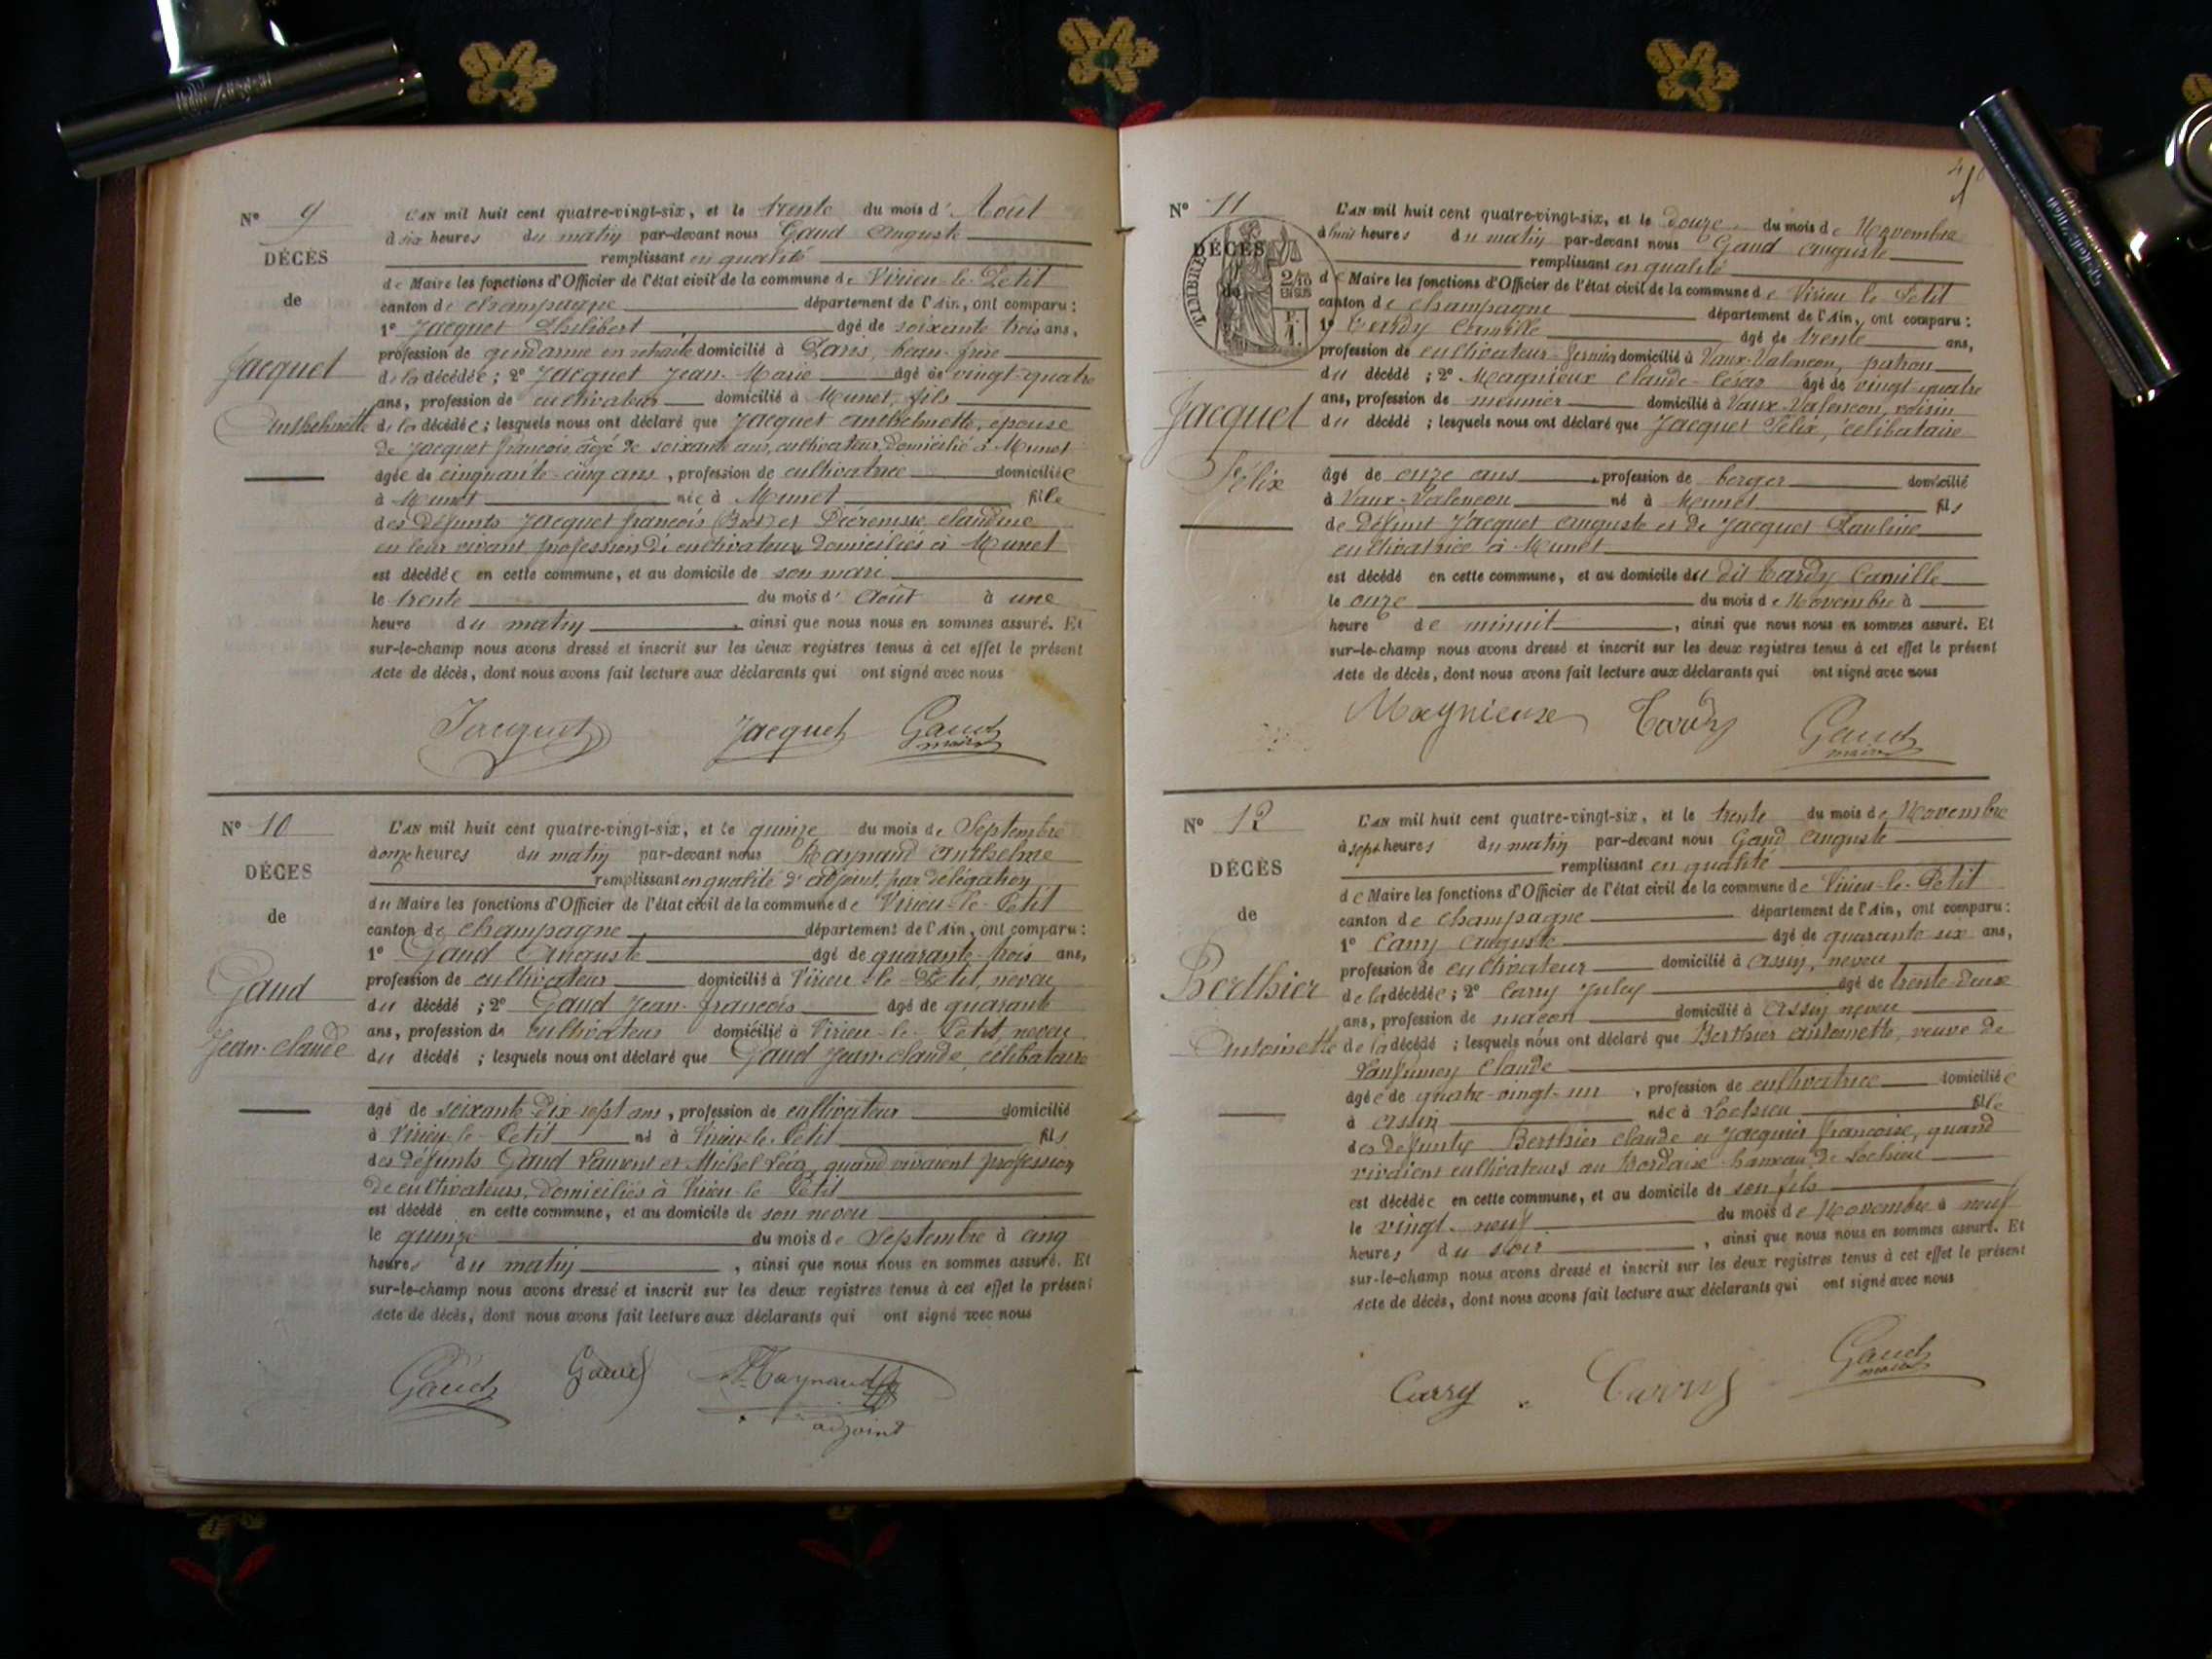 N° 9
DÉCÈS
de
Jacquet
Anthelmette
L'AN mil huit cent quatre-vingt-six, et le trente du mois d' Août
à six heures du matin par-devant nous Gaud Auguste
remplissant en qualité
de Maire les fonctions d'Officier de l'état civil de la commune de Virieu-le-Petit
canton de Champagne département de l'Ain, ont comparu :
1° Jacquet Philibert âgé de soixante trois ans,
profession de gendarme en retraite domicilié à Paris, beau-frère
de la décédée ; 2° Jacquet Jean-Marie âgé de vingt-quatre
ans, profession de cultivateur domicilié à Munet, fils
de la décédée ; lesquels nous ont déclaré que Jacquet Anthelmette, épouse
de Jacquet françois, âgé de soixante ans, cultivateur, domicilié à Munet
âgée de cinquante-cinq ans, profession de cultivatrice domiciliée
à Munet née à Munet fille
des défunts Jacquet françois (Brot) et Claudine
en leur vivant profession de cultivateurs domiciliés à Munet
est décédée en cette commune, et au domicile de son mari
le trente du mois d' Août à une
heure du matin, ainsi que nous nous en sommes assuré. Et
sur-le-champ nous avons dressé et inscrit sur les deux registres tenus à cet effet le présent
Acte de décès, dont nous avons fait lecture aux déclarants qui ont signé avec nous
Jacquet Jacquet Gaud
maire
N° 10
DÉCÈS
de
Gaud
Jean-Claude
L'AN mil huit cent quatre-vingt-six, et le quinze du mois de Septembre
à onze heures du matin par-devant nous Raynaud Anthelme
remplissant en qualité d'adjoint, par délégation
du Maire les fonctions d'Officier de l'état civil de la commune de Virieu-le-Petit
canton de Champagne département de l'Ain, ont comparu :
1° Gaud Auguste âgé de quarante-trois ans,
profession de cultivateur domicilié à Virieu-le-Petit, neveu
du décédé ; 2° Gaud Jean-françois âgé de quarante
ans, profession de cultivateur domicilié à Virieu-le-Petit, neveu
du décédé ; lesquels nous ont déclaré que Gaud Jean-Claude, célibataire
âgé de soixante-dix-sept ans, profession de cultivateur domicilié
à Virieu-le-Petit né à Virieu-le-Petit fils
des défunts Gaud Laurent et Michel quand vivaient profession
de cultivateurs, domiciliés à Virieu-le-Petit
est décédé en cette commune, et au domicile de son neveu
le quinze du mois de Septembre à cinq
heures du matin, ainsi que nous nous en sommes assuré. Et
sur-le-champ nous avons dressé et inscrit sur les deux registres tenus à cet effet le présent
Acte de décès, dont nous avons fait lecture aux déclarants qui ont signé avec nous
Gaud Gaud Raynaud
adjoint
N° 11
DÉCÈS
de
TIMBRE
2/10
EN SUS
Jacquet
Félix
L'AN mil huit cent quatre-vingt-six, et le douze du mois de Novembre
à huit heures du matin par-devant nous Gaud Auguste
remplissant en qualité
de Maire les fonctions d'Officier de l'état civil de la commune de Virieu-le-Petit
canton de Champagne département de l'Ain, ont comparu :
1° Tardy Camille âgé de trente ans,
profession de cultivateur-fermier domicilié à Vaux-Valençon, patron
du décédé ; 2° Magnieux Claude-César âgé de vingt-quatre
ans, profession de meunier domicilié à Vaux-Valençon, voisin
du décédé ; lesquels nous ont déclaré que Jacquet Félix, célibataire
âgé de onze ans, profession de berger domicilié
à Vaux-Valençon né à Munet fils
de défunt Jacquet Auguste et de Jacquet Pauline
cultivatrice à Munet
est décédé en cette commune, et au domicile du dit Tardy Camille
le onze du mois de Novembre à
heure de minuit, ainsi que nous nous en sommes assuré. Et
sur-le-champ nous avons dressé et inscrit sur les deux registres tenus à cet effet le présent
Acte de décès, dont nous avons fait lecture aux déclarants qui ont signé avec nous
Magnieux Tardy Gaud
maire
N° 12
DÉCÈS
de
Berthier
Antoinette
L'AN mil huit cent quatre-vingt-six, et le trente du mois de Novembre
à sept heures du matin par-devant nous Gaud Auguste
remplissant en qualité
de Maire les fonctions d'Officier de l'état civil de la commune de Virieu-le-Petit
canton de Champagne département de l'Ain, ont comparu :
1° Carry Auguste âgé de quarante-six ans,
profession de cultivateur domicilié à Assin, neveu
de la décédée ; 2° Carry Jules âgé de trente-deux
ans, profession de maçon domicilié à Assin neveu
de la décédé ; lesquels nous ont déclaré que Berthier Antoinette, veuve de
Lanfumey Claude
âgée de quatre-vingt-un, profession de cultivatrice domiciliée
à Assin née à Lochieu fille
des défunts Berthier Claude et Jacquier françoise, quand
vivaient cultivateurs au Bordaise hameau de Lochieu
est décédée en cette commune, et au domicile de son fils
le vingt-neuf du mois de Novembre à neuf
heures du soir, ainsi que nous nous en sommes assuré. Et
sur-le-champ nous avons dressé et inscrit sur les deux registres tenus à cet effet le présent
Acte de décès, dont nous avons fait lecture aux déclarants qui ont signé avec nous
Carry Carry Gaud
maire